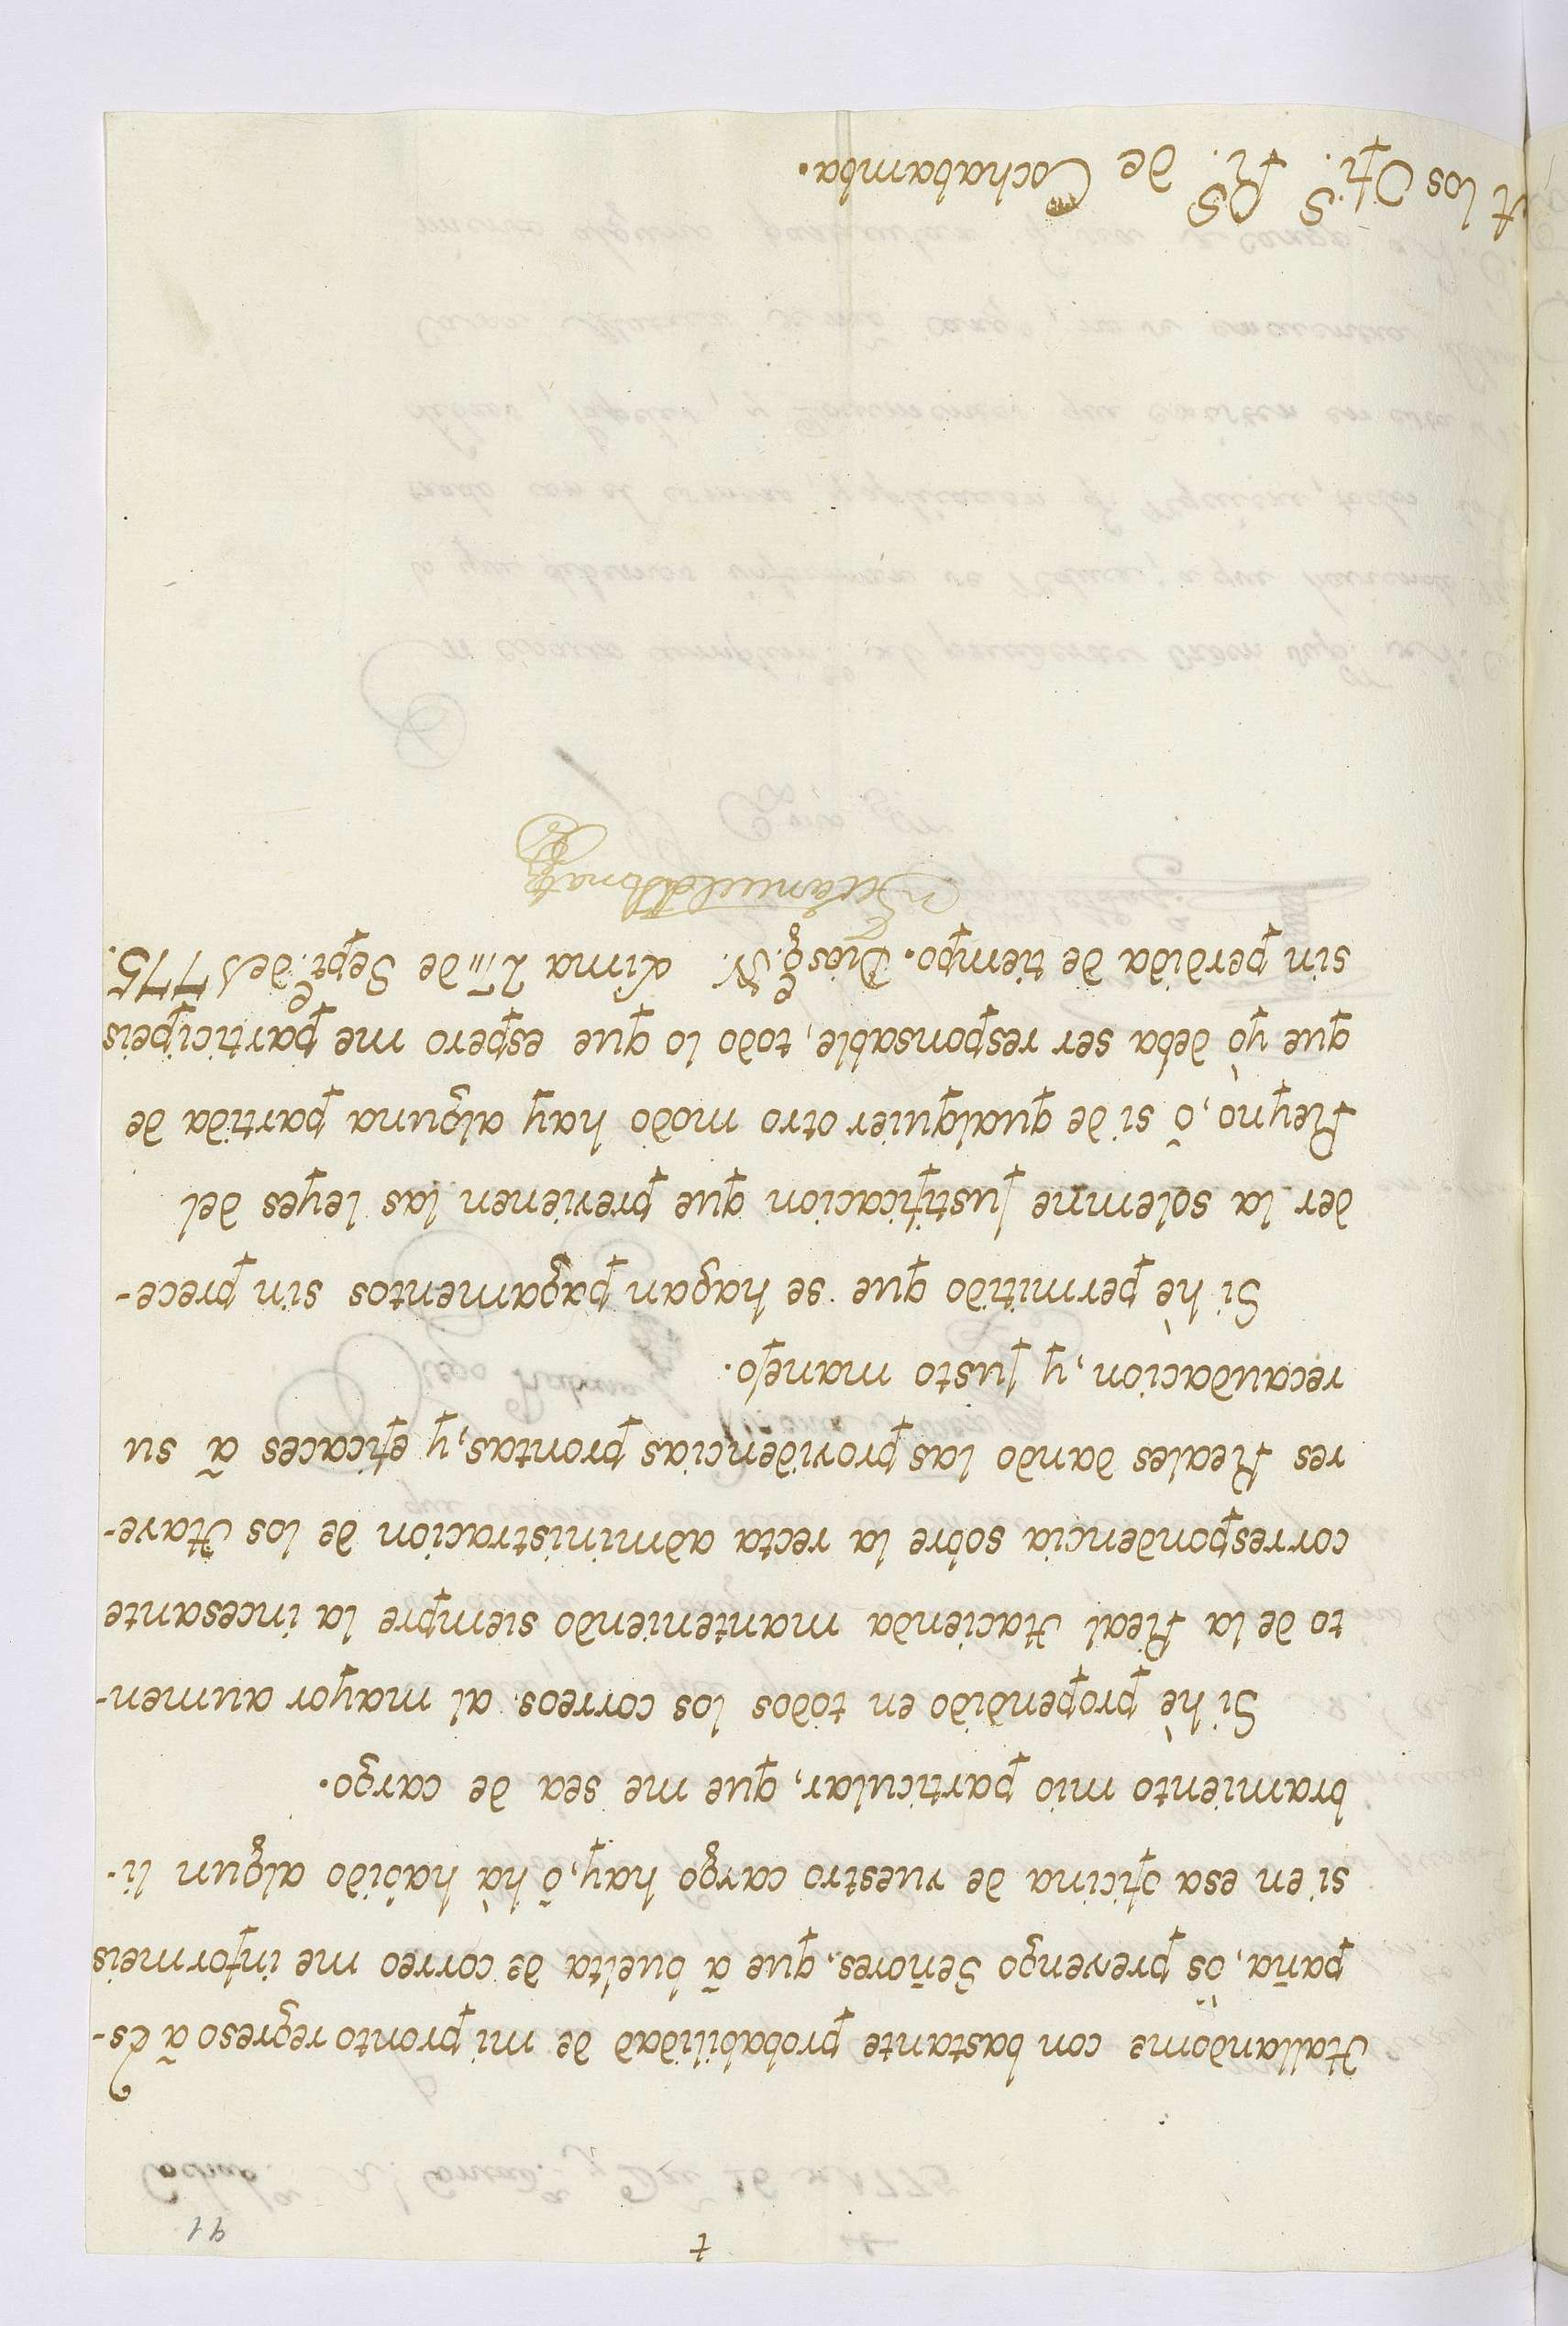 t
91
Hallandome con bastante probabilidad de mi pronto regreso â Es-
paña, os prevengo Señores, que â buelta de correo me informeis
si en esa oficina de vuestro cargo hay, ô hà habido algun li-
bramiento mio particular, que me sea de cargo.
Si hè propendido en todos los correos al mayor aumen-
to de la Real Hacienda manteniendo siempre la incesante
correspondencia sobre la recta administracion de los Have-
res Reales dando las providencias prontas, y eficaces â su
recaudacion, y justo manejo.
Si hè permitido que se hagan pagamentos sin prece-
der la solemne justificacion que previenen las leyes del
Reyno, ô si de qualquier otro modo hay alguna partida de
que yò deba ser responsable, todo lo que espero me participeis
sin perdida de tiempo. Dios g.e V. Lima 27 de Sept.e de 1775.
A los Of.s R.s de Cochabamba.